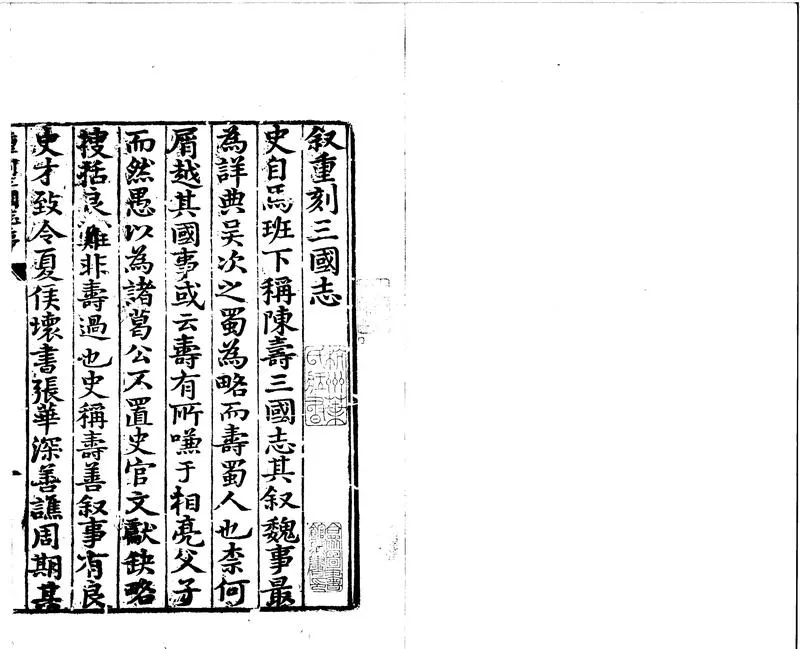 叙重刻三國志
史自馬班下稱陳壽三國志其叙魏事最
為詳典吳次之蜀為略而壽蜀人也柰何
屑越其國事或云壽有所嗛于相亮父子
而然愚以為諸葛公不置史官文獻缺略
搜括良難非壽過也史稱壽善叙事有良
史才致令夏侯壞書張華深善譙周期甚